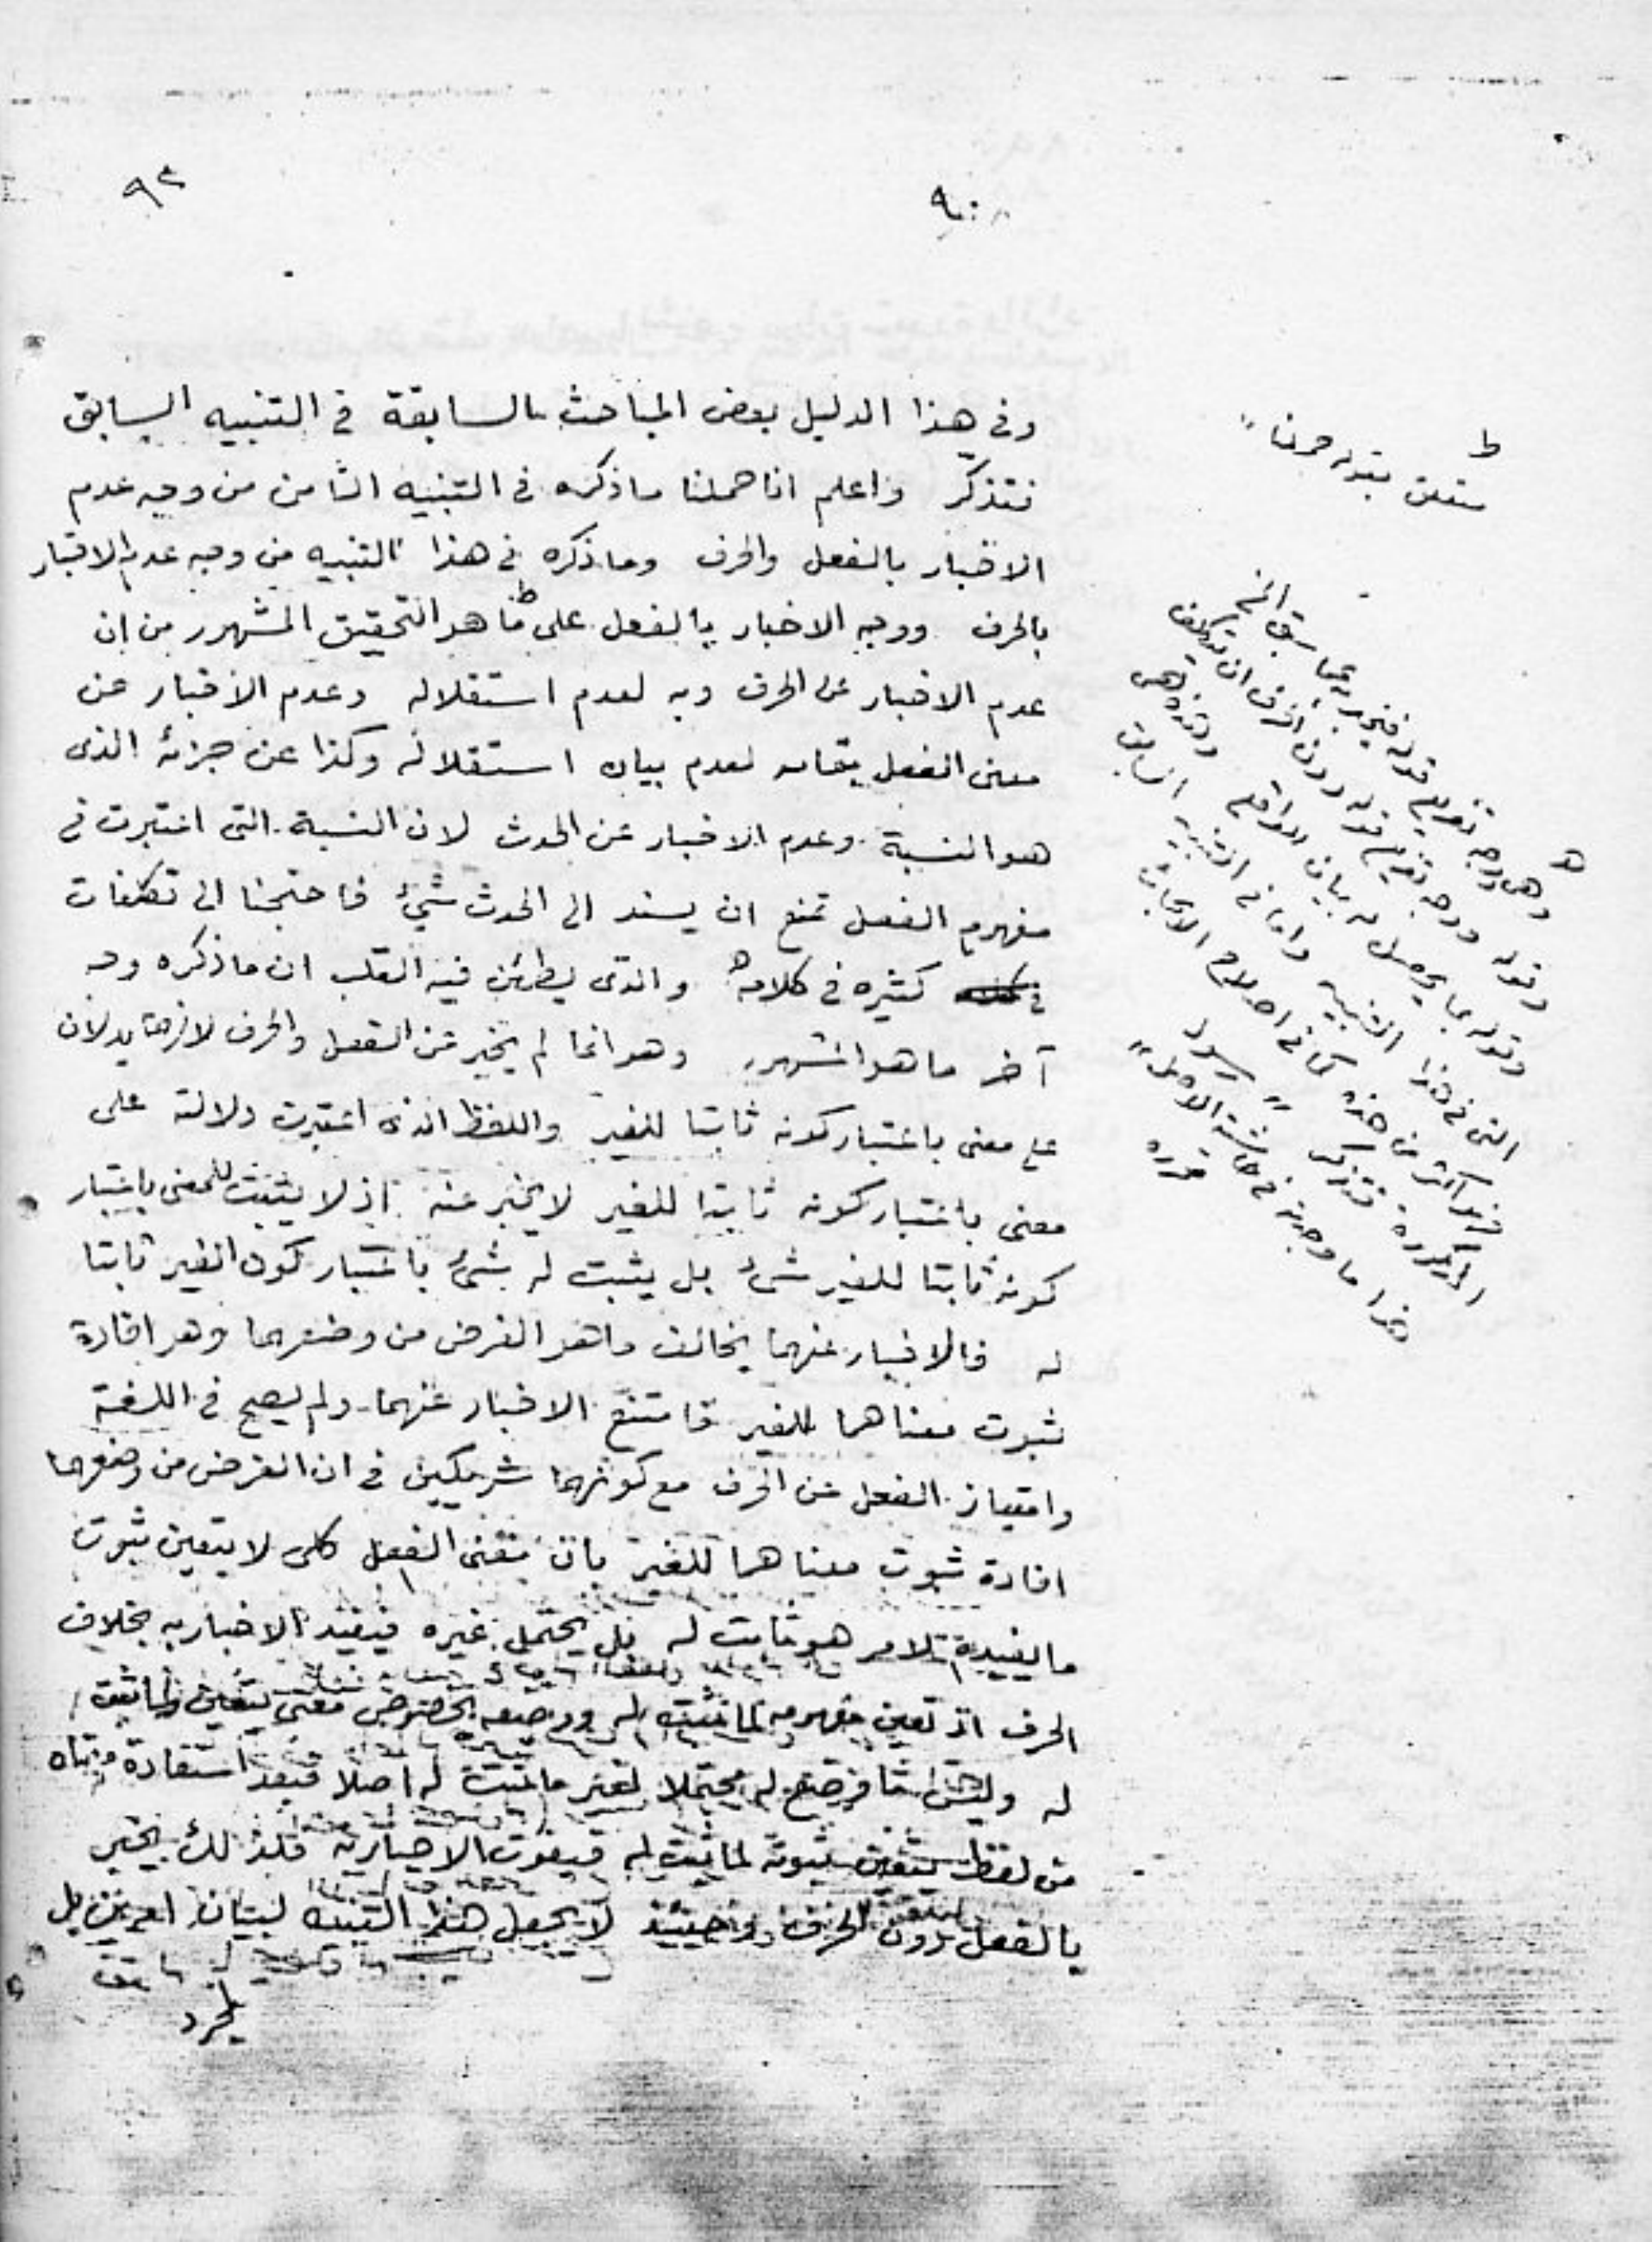 ٩٢
٩٠
وفي هذا الدليل بعض المباحث السابقة في التنبيه السابق
فتذكر واعلم انا حملنا ماذكره في التنبيه الثامن من وجه عدم
الاخبار بالفعل والحرف وماذكره في هذا التنبيه من وجه عدم الاخبار
بالحرف ووجه الاخبار بالفعل على ما هو التحقيق المشهور من ان
عدم الاخبار عن الحرف وبه لعدم استقلاله وعدم الاخبار عن
معنى الفعل بتمامه لعدم بيان استقلاله وكذا عن جزئه الذى
هو النسبة وعدم الاخبار عن الحدث لان النسبة التى اعتبرت في
مفهوم الفعل تمنع ان يسند الى الحدث شئ فاحتجنا الى تكلفات
كثيره في كلامه والذى يطمئن فيه القلب ان ماذكره وجه
آخر ما هو المشهور وهو انما لم يخبر عن الفعل والحرف لانهما يدلان
على معنى باعتبار كونه ثابتا للغير واللفظ الذى اعتبرت دلالته على
معنى باعتبار كونه ثابتا للغير لايخبر عنه اذ لا يثبت للمعنى باعتبار
كونه ثابتا للغير شئ بل يثبت له شئ باعتبار كون الغير ثابتا
له فالاخبار عنهما يخالف ماهو الغرض من وضعهما وهو افادة
ثبوت معناهما للغير فامتنع الاخبار عنهما ولم يصح في اللغة
وامتياز الفعل عن الحرف مع كونهما شريكين في ان الغرض من وضعهما
افادة ثبوت معناهما للغير بان معنى الفعل كلى لا يتعين ثبوت
ما يفيده لامر هو ثابت له بل يحتمل غيره فيفيد الاخبار به بخلاف
الحرف اذ تعين مفهومه لما يثبت له ووضعه بخصوص معنى يتعين لما يثبت
له وليس محتملا لغير ما يثبت له اصلا فبعد استفادة معناه
من لفظه يتعين ثبوته لما يثبت له فيفوت الاخبار به فلذلك يخبر
بالفعل دون الحرف وحينئذ لا يجعل هذا التنبيه لبيان امرين بل
لمجرد
ط
متعلق بقوله حملنا
ه
وهى وجه تقديم قوله فيخبر بما سبق الخ